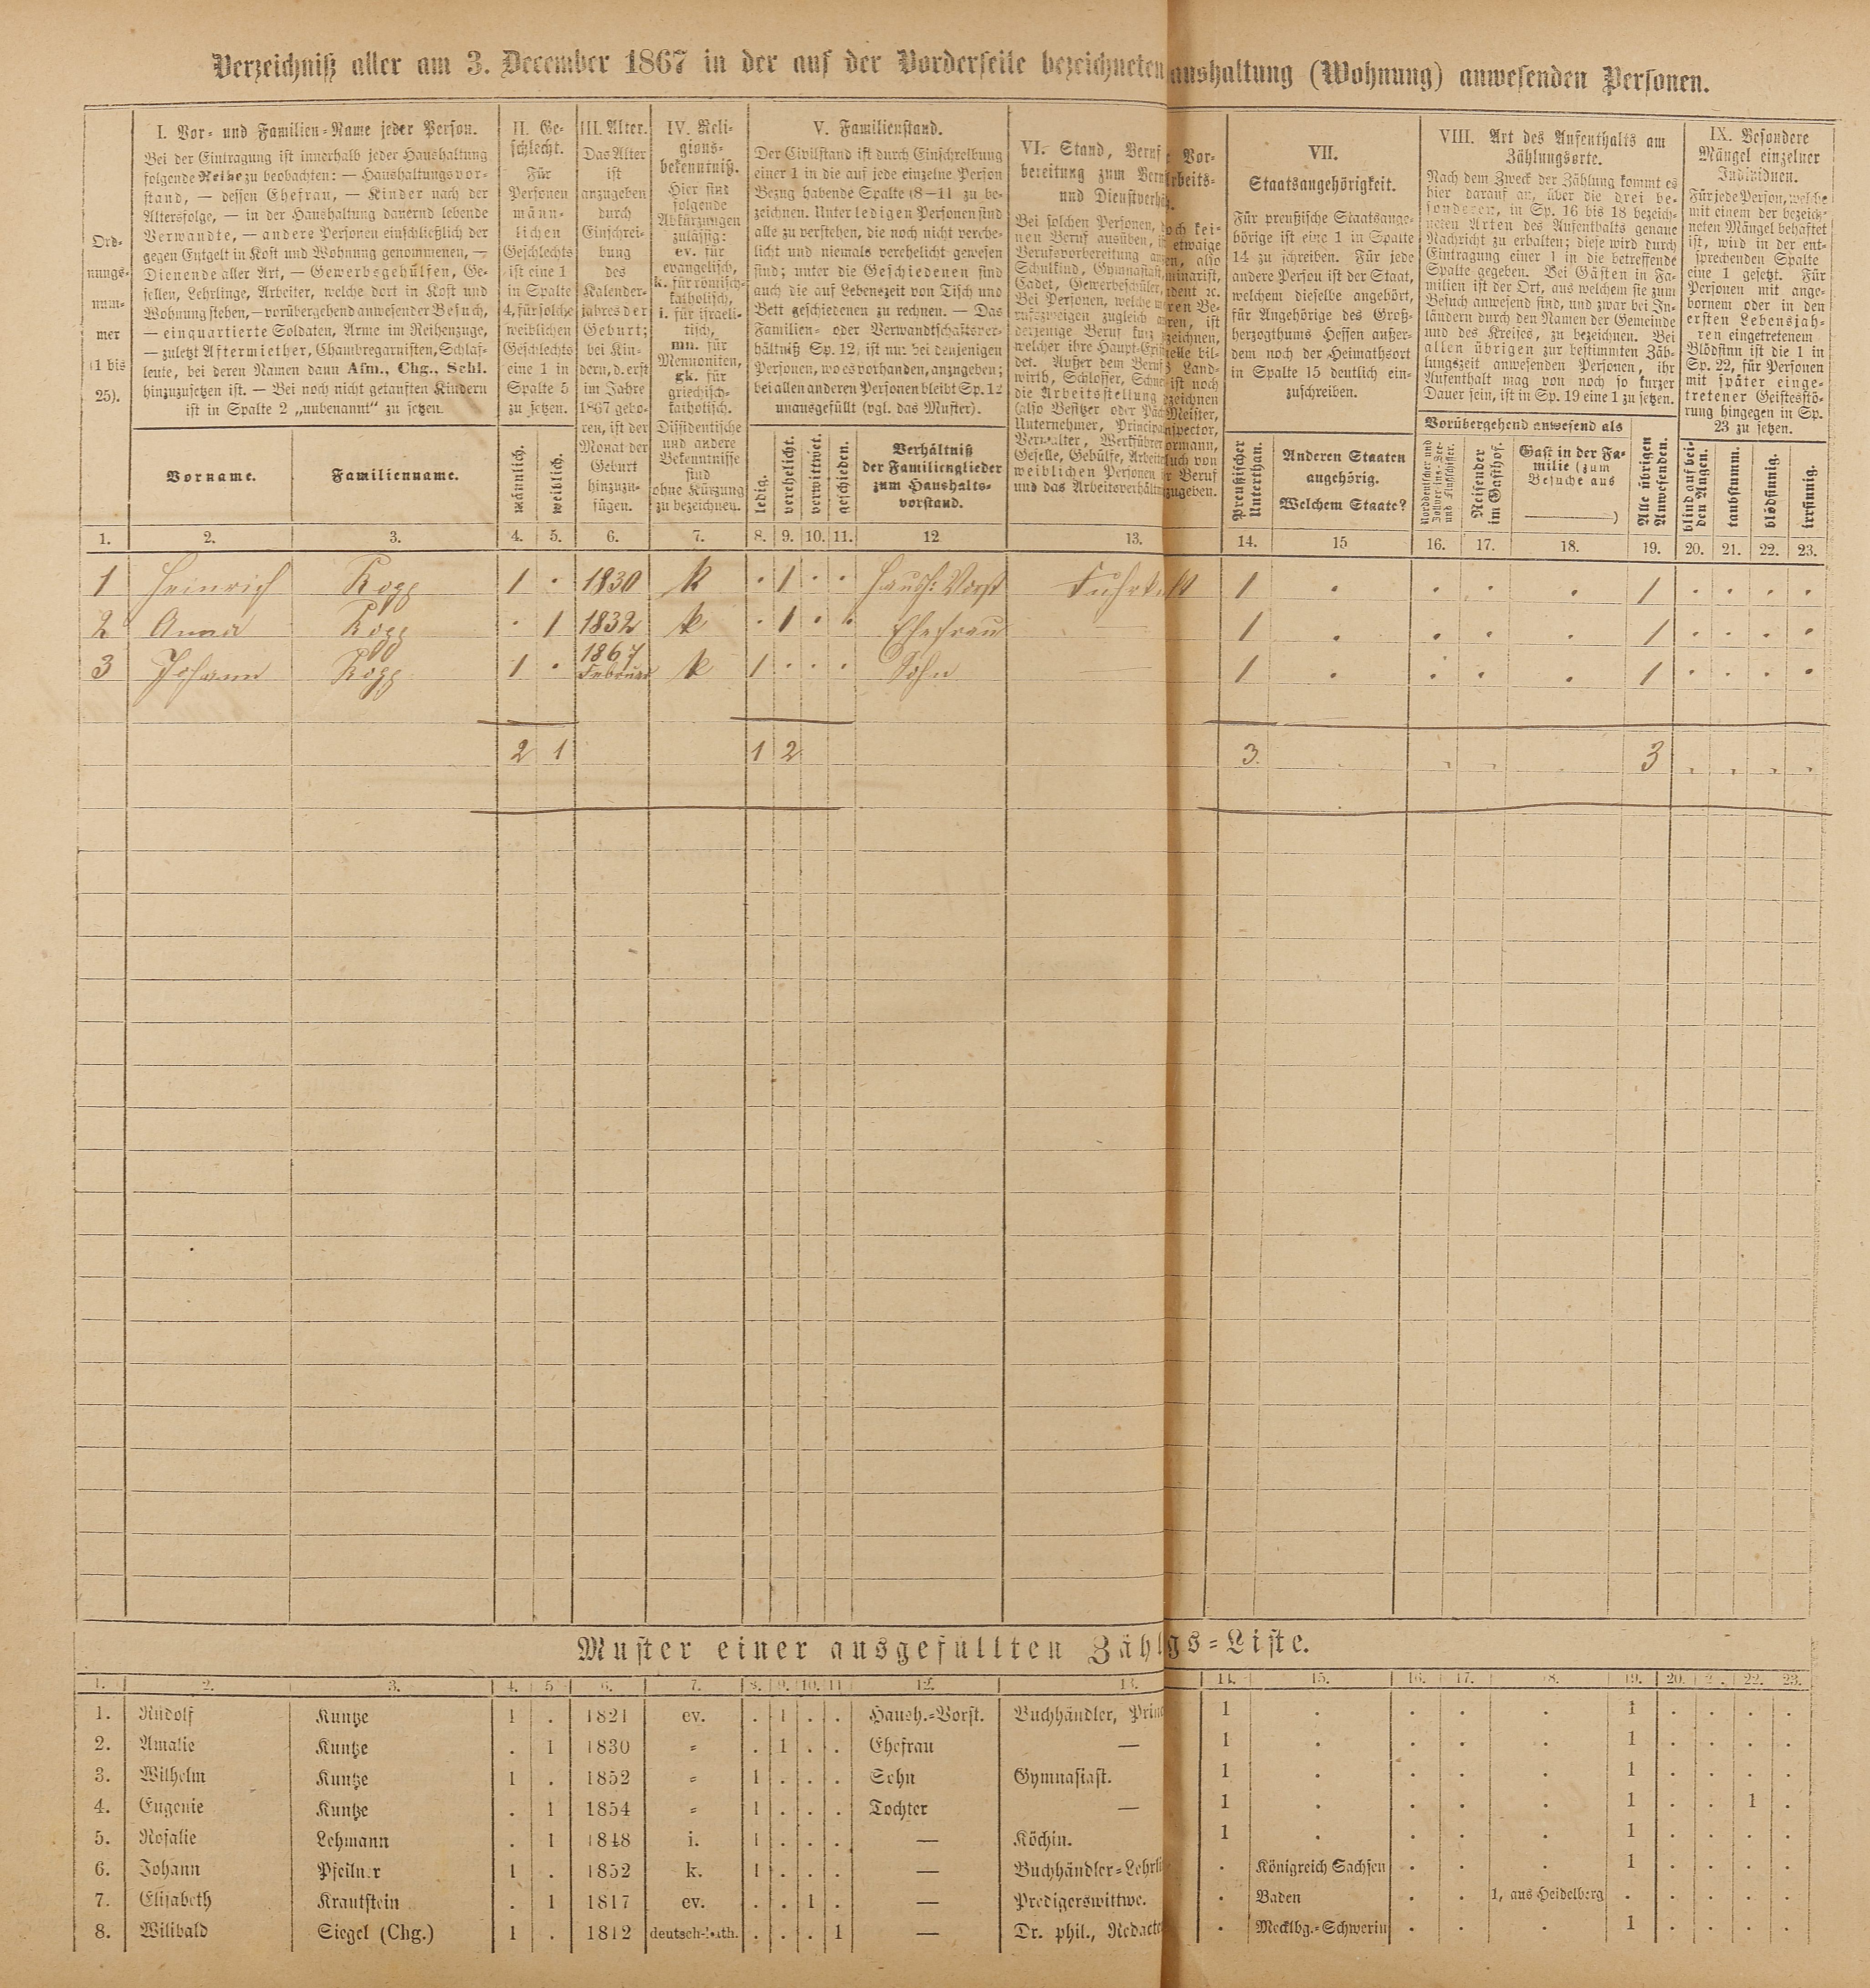 Verzeichniß aller am 3. December 1867 in der auf der Vorderseite bezeichneten aushaltung (Wohnung) anwesenden Personen.
Ord-
nungs-
num-
mer
(1 bis
25).
I. Vor- und Familien-Name jeder Person.
Bei der Eintragung ist innerhalb jeder Haushaltung
folgende Reihe zu beobachten: — Haushaltungsvor-
stand, — dessen Ehefrau, — Kinder nach der
Altersfolge, — in der Haushaltung dauernd lebende
Verwandte, — andere Personen einschließlich der
gegen Entgelt in Kost und Wohnung genommenen, —
Dienende aller Art, — Gewerbsgehülfen, Ge-
sellen, Lehrlinge, Arbeiter, welche dort in Kost und
Wohnung stehen, — vorübergehend anwesender Besuch,
— einquartierte Soldaten, Arme im Reihenzuge,
— zuletzt Aftermiether, Chambregarnisten, Schlaf-
leute, bei deren Namen dann Afm., Chg., Schl.
hinzuzusetzen ist. — Bei noch nicht getauften Kindern
ist in Spalte 2 „unbenannt“ zu setzen.
Vorname.
Familienname.
II. Ge-
schlecht.
Für
Personen
männ-
lichen
Geschlechts
ist eine 1
in Spalte
4, für solche
weiblichen
Geschlechts
eine 1 in
Spalte 5
zu setzen.
männlich.
weiblich.
III. Alter.
Das Alter
ist
anzugeben
durch
Einschrei-
bung
des
Kalender-
jahres der
Geburt;
bei Kin-
dern, d. erst
im Jahre
1867 gebo-
ren, ist der
Monat der
Geburt
hinzuzu-
fügen.
IV. Reli-
gions-
bekenntniß.
Hier sind
folgende
Abkürzungen
zulässig:
ev. für
evangelisch,
k. für römisch-
katholisch,
i. für israeli-
tisch,
mn. für
Mennoniten,
gk. für
griechisch-
katholisch.
Dissidentische
und andere
Bekenntnisse
sind
ohne Kürzung
zu bezeichnen.
V. Familienstand.
Der Civilstand ist durch Einschreibung
einer 1 in die auf jede einzelne Person
Bezug habende Spalte (8—11 zu be-
zeichnen. Unter ledigen Personen sind
alle zu verstehen, die noch nicht verehe-
licht und niemals verehelicht gewesen
sind; unter die Geschiedenen sind
auch die auf Lebenszeit von Tisch und
Bett geschiedenen zu rechnen. — Das
Familien- oder Verwandtschaftsver-
hältniß Sp. 12, ist nur bei denjenigen
Personen, wo es vorhanden, anzugeben;
bei allen anderen Personen bleibt Sp. 12
unausgefüllt (vgl. das Muster).
ledig.
verehelicht.
verwittwet.
geschieden.
Verhältniß
der Familienglieder
zum Haushalts-
vorstand.
VI. Stand, Beruf Vor-
bereitung zum Beru rbeits-
und Dienstverhä
Bei solchen Personen, och kei-
nen Beruf ausüben, i etwaige
Berufsvorbereitung an en, also
Schulkind, Gymnasiast, minarist,
Cadet, Gewerbeschüler, dent ꝛc.
Bei Personen, welche ren Be-
rufszweigen zugleich ren, ist
derjenige Beruf kurz zeichnen,
welcher ihre Haupt-Exi ielle bil-
det. Außer dem Beruf Land-
wirth, Schlosser, Schne ist noch
die Arbeitsstellung ezeichnen
(also Besitzer oder Päch Meister,
Unternehmer, Principa nspector,
Verwalter, Werkführer ormann,
Geselle, Gehülfe, Arbeite uch von
weiblichen Personen r Beruf
und das Arbeitsverhältn zugeben.
VII.
Staatsangehörigkeit.
Für preußische Staatsange-
hörige ist eine 1 in Spalte
14 zu schreiben. Für jede
andere Person ist der Staat,
welchem dieselbe angehört,
für Angehörige des Groß-
herzogthums Hessen außer-
dem noch der Heimathsort
in Spalte 15 deutlich ein-
zuschreiben.
Preußischer
Unterthan.
Anderen Staaten
angehörig.
Welchem Staate?
VIII. Art des Aufenthalts am
Zählungsorte.
Nach dem Zweck der Zählung kommt es
hier darauf an, über die drei be-
sonderen, in Sp. 16 bis 18 bezeich-
neten Arten des Aufenthalts genaue
Nachricht zu erhalten; diese wird durch
Eintragung einer 1 in die betreffende
Spalte gegeben. Bei Gästen in Fa-
milien ist der Ort, aus welchem sie zum
Besuch anwesend sind, und zwar bei In-
ländern durch den Namen der Gemeinde
und des Kreises, zu bezeichnen. Bei
allen übrigen zur bestimmten Zäh-
lungszeit anwesenden Personen, ihr
Aufenthalt mag von noch so kurzer
Dauer sein, ist in Sp. 19 eine 1 zu setzen.
Vorübergehend anwesend als
Norddeutscher und
Zollver-ins-See-
und Flußschiffer.
Reisender
im Gasthof.
Gast in der Fa-
milie (zum
Besuche aus
)
Alle übrigen
Anwesenden.
IX. Besondere
Mängel einzelner
Individuen.
Für jede Person, welche
mit einem der bezeich-
neten Mängel behaftet
ist, wird in der ent-
sprechenden Spalte
eine 1 gesetzt. Für
Personen mit ange-
bornem oder in den
ersten Lebensjah-
ren eingetretenem
Blödsinn ist die 1 in
Sp. 22, für Personen
mit später einge-
tretener Geistesstö-
rung hingegen in Sp.
23 zu setzen.
blind auf bei-
den Augen.
taubstumm.
blödsinnig.
irrsinnig.
1. 2. 3. 4. 5. 6. 7. 8. 9. 10. 11. 12 13. 14. 15 16. 17. 18. 19. 20. 21. 22. 23.
1 Heinrich Kopp 1 · 1830 k · 1 · · Haush: Vorst 1 · · · · 1 · · · ·
2 Anna Kopp · 1 1832 k · 1 · · Ehefrau — 1 · · · · 1 · · · ·
3 Johann Kopp 1 · 1867 Februar k 1 · · · Sohn — 1 · · · · 1 · · · ·
2 1 1 2 3 3
Muster einer ausgefüllten Zähl gs-Liste.
1. 2. 3. 4. 5 6. 7. 8. 9. 10. 11 12. 13. 14. 15. 16. 17. 8. 19. 20. 2 . 22. 23.
1. Rudolf Kuntze 1 . 1821 ev. . 1 . . Haush.-Vorst. Buchhändler, Prin 1 . . . . 1 . . . .
2. Amalie Kuntze . 1 1830 = . 1 . . Ehefrau — 1 . . . . 1 . . . .
3. Wilhelm Kuntze 1 . 1852 = 1 . . . Sohn Gymnasiast. 1 . . . . 1 . . . .
4. Eugenie Kuntze . 1 1854 = 1 . . . Tochter — 1 . . . . 1 . . 1 .
5. Rosalie Lehmann . 1 1848 i. 1 . . . — Köchin. 1 . . . . 1 . . . .
6. Johann Pfeilner 1 . 1852 k. 1 . . . — Buchhändler-Lehrli . Königreich Sachsen . . . 1 . . . .
7. Elisabeth Krautstein . 1 1817 ev. . . 1 . — Predigerswittwe. . Baden . . 1, aus Heidelberg . . . . .
8. Wilibald Siegel (Chg.) 1 . 1812 deutsch-kath. . . . 1 — Dr. phil., Redacte . Mecklbg.-Schwerin . . . 1 . . . .